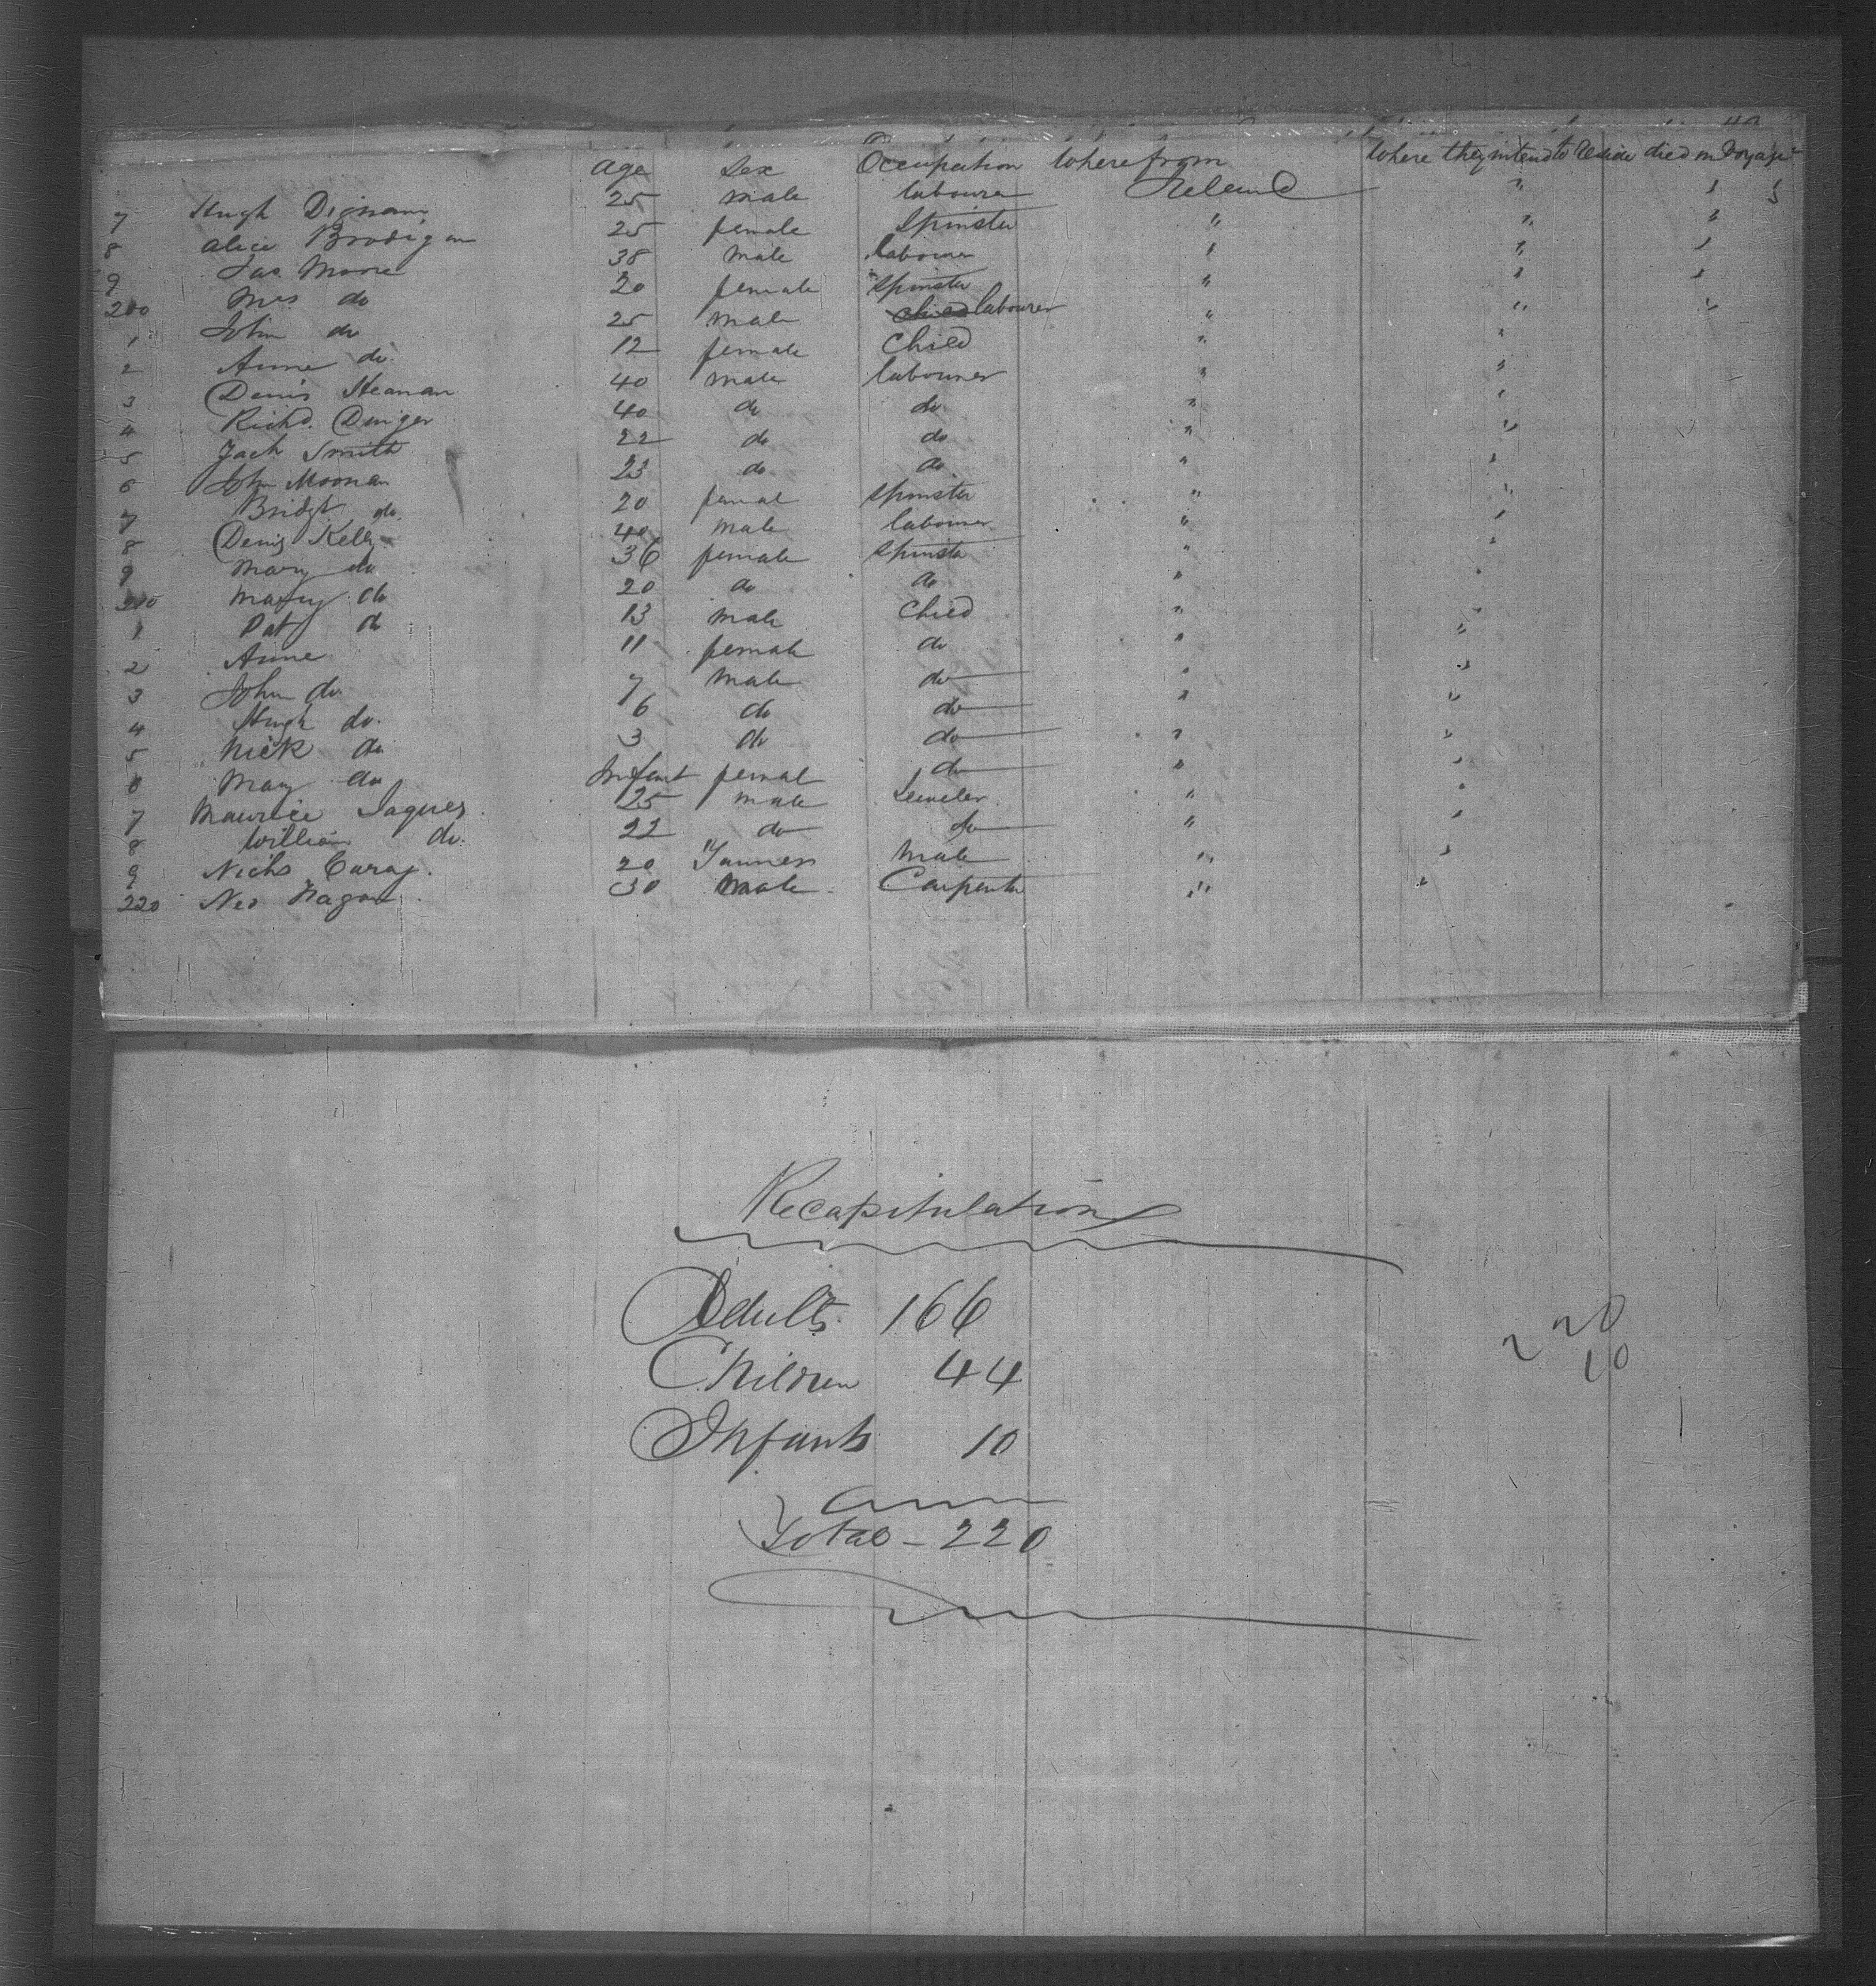 Age Sex Occupation Where from Where they intend to Reside died on Voyage
7 Hugh Dignam 25 male labourer Ireland " "
8 Alice Brodigan 25 female Spinster " " "
9 Jas Moore 38 male labourer " " "
200 Mrs do 20 female Spinster " " "
1 John do 25 male labourer " " "
2 Anne do 12 female Child " "
3 Denis Heanan 40 male labourer " "
4 Richd. 40 do do " "
5 Jack Smith 22 do do " "
6 John Moonan 23 do do " "
7 Bridgt do 20 femal Spinster " "
8 Denis Kelly 40 male labourer " "
9 Mary do 36 female Spinster " "
210 do 20 do do " "
1 Pat do 13 male Child " "
2 Anne 11 female do " "
3 John do 7 male do " "
4 Hugh do 6 do do " "
5 Nick do 3 do do " "
6 Mary do Infant femal do " "
7 Maurice Jaques 25 male Jeweler " "
8 William do 22 do do " "
9 Nichs 20 Tanner male " "
220 30 male Carpenter " "
Recapitulation
Adults 166
Children 44 220
Infants 10 10
Total - 220